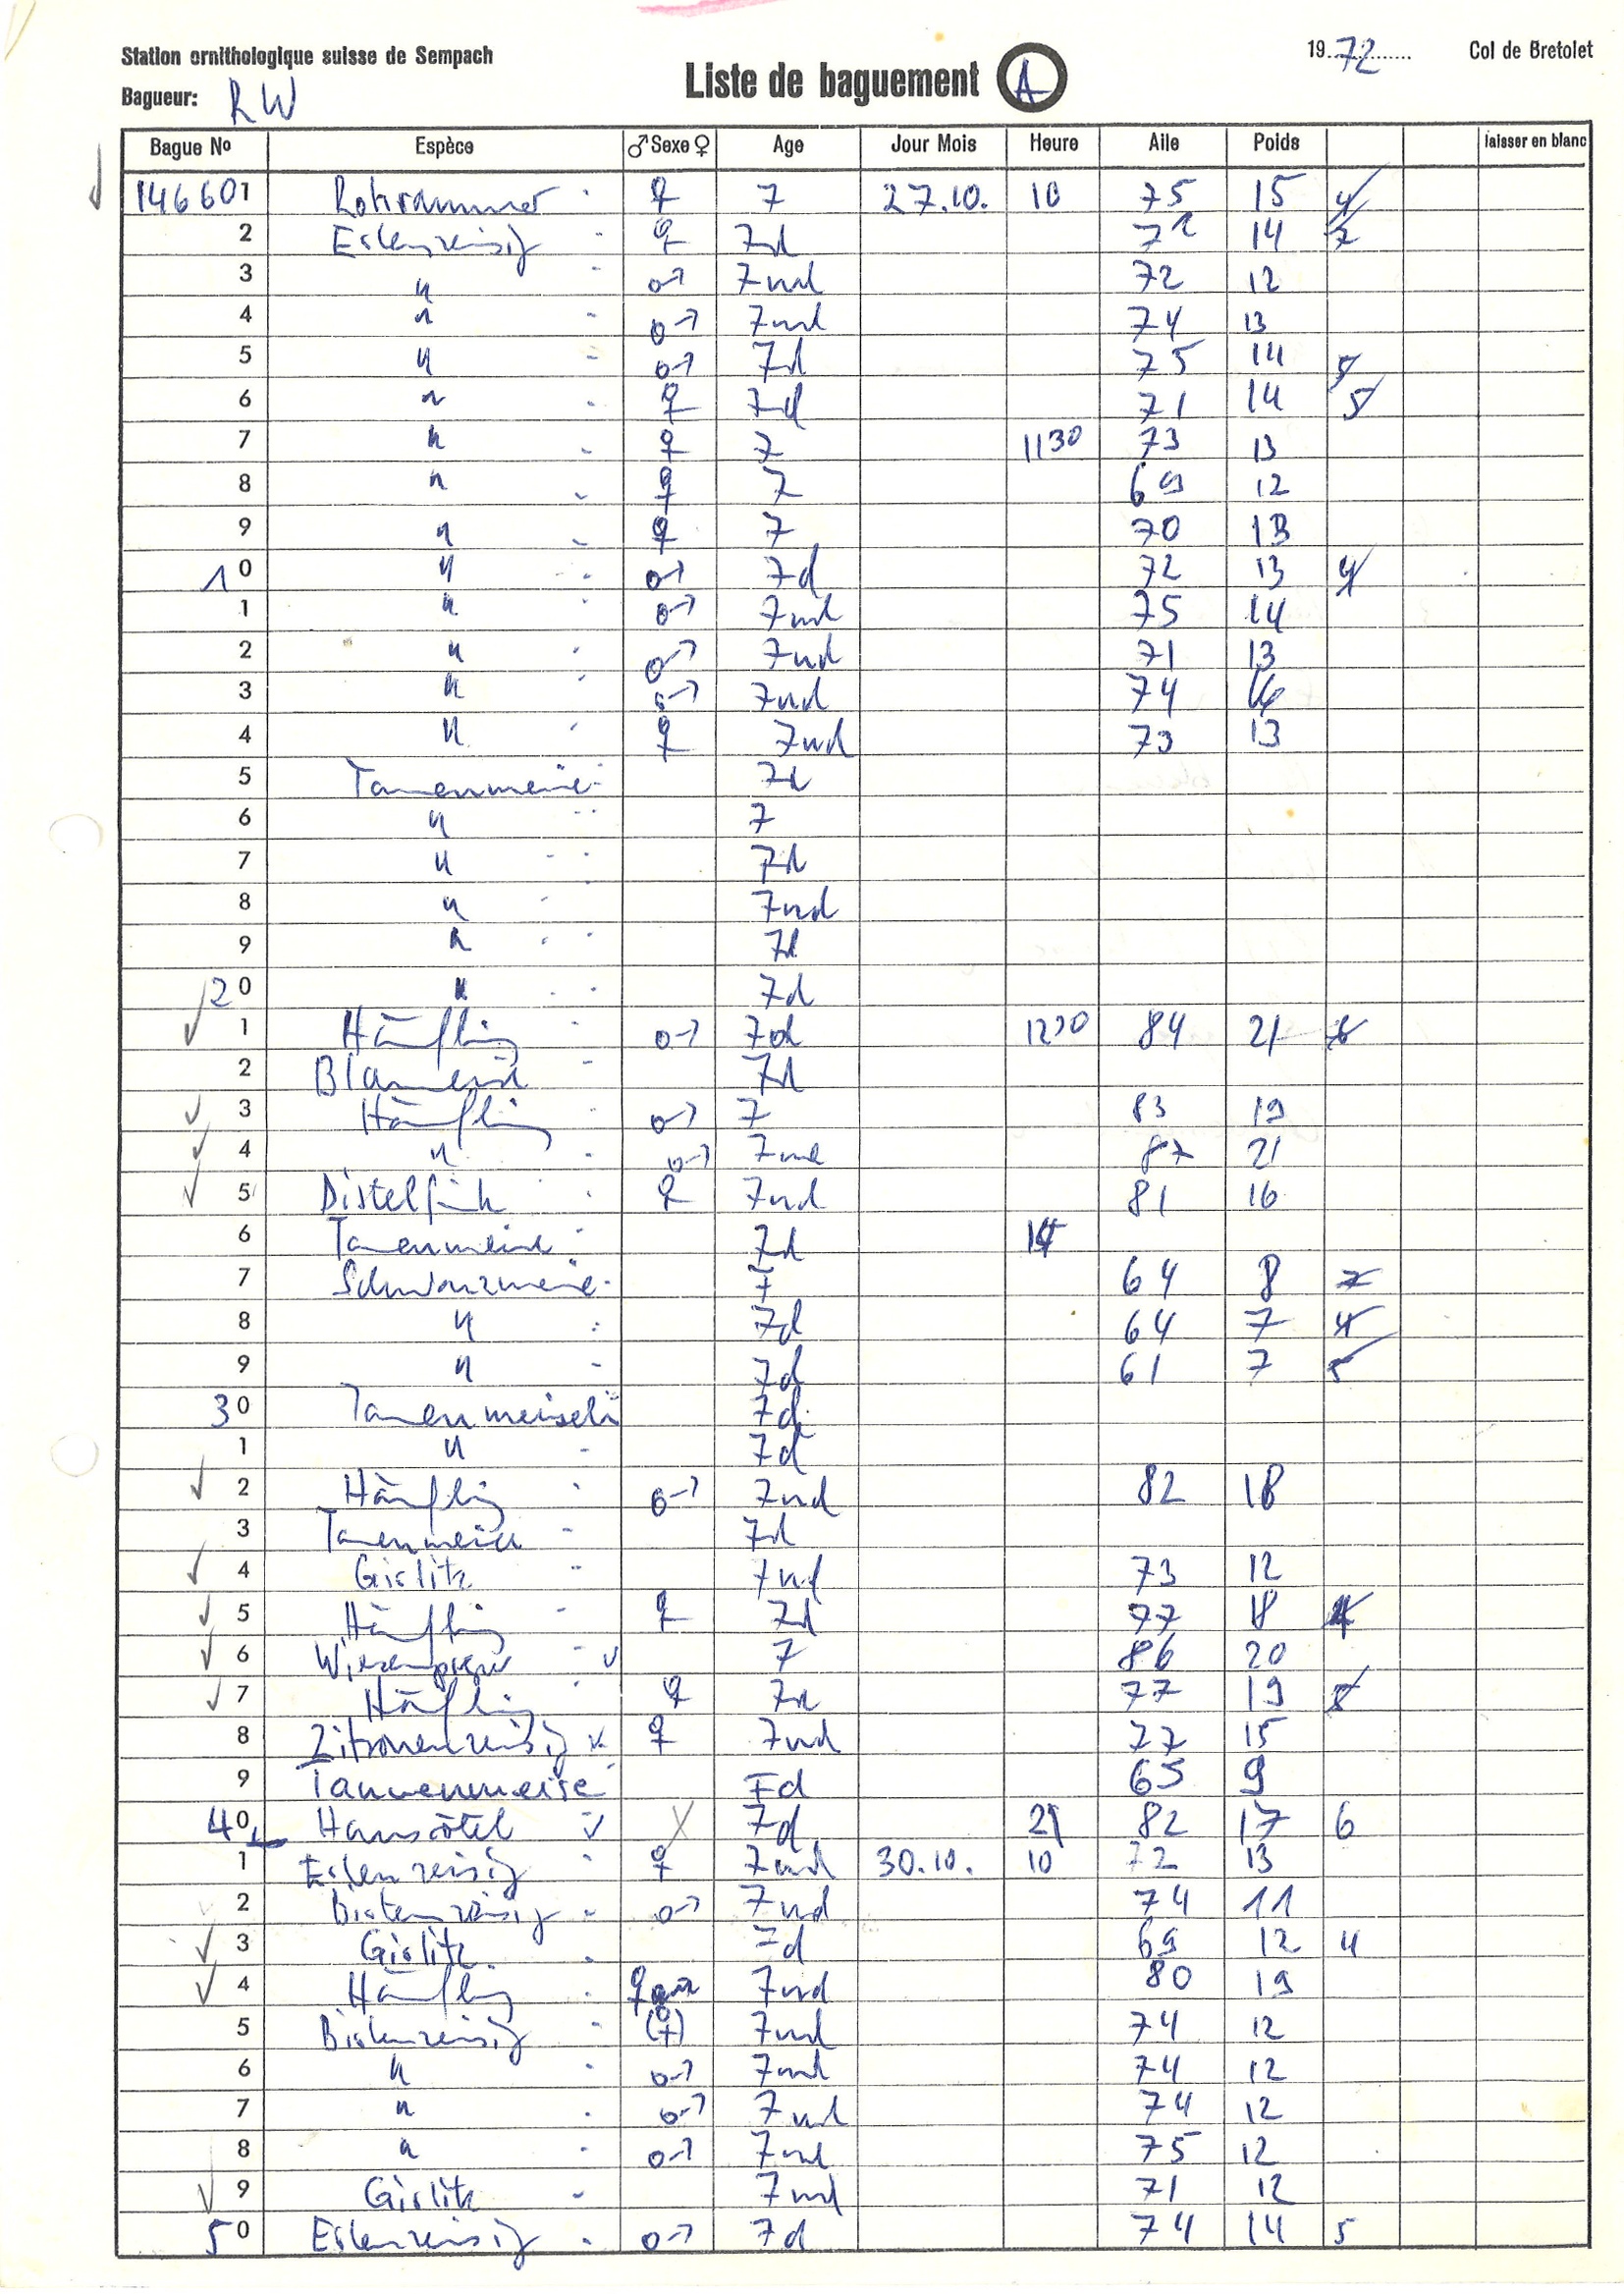 Station ornithologique suisse de Sempach
Liste de baguement A
1972 Col de Bretolet
Bagueur: RW
Bague No Espèce ♂ Sexe ♀ Age Jour Mois Heure Aile Poids laisser en blanc
146601 Rohrammer ♀ 7 27.10. 10 75 15 4
2 Erlenzeisig ♀ 7d 71 14 7
3 " ♂ 7nd 72 12
4 " ♂ 7nd 74 13
5 " ♂ 7d 75 14 5
6 " ♀ 7d 71 14 5
7 " ♀ 7 1130 73 13
8 " ♀ 7 69 12
9 " ♀ 7 70 13
10 " ♂ 7d 72 13 4
1 " ♂ 7nd 75 14
2 " ♂ 7nd 71 13
3 " ♂ 7nd 74
4 " ♀ 7nd 73 13
5 Tanenmeise 7d
6 " 7
7 " 7d
8 " 7nd
9 " 7d
20 " 7d
1 Hänfling ♂ 7d 1230 84 21
2 Blaumeise 7d
3 Hänfling ♂ 7 83 19
4 " ♂ 7nd 87 21
5 Distelfink ♀ 7nd 81 16
6 Tanenmeise 7d 14
7 Schwanzmeise 7 64 8 7
8 " 7d 64 7 4
9 " 7d 61 7 5
30 Tanenmeiseli 7d
1 " 7d
2 Hänfling ♂ 7nd 82 18
3 Tanenmeise 7d
4 Girlitz 7nd 73 12
5 Hänfling ♀ 7d 77 18 4
6 Wiesenpieper 7 86 20
7 Hänfling ♀ 7d 77 19
8 Zitronenzeisig ♀ 7nd 77 15
9 Tannenmeise 7d 65 9
40 Hausrötel 7d 21 82 17 6
1 Erlenzeisig ♀ 7nd 30.10. 10 72 13
2 Birkenzeisig ♂ 7nd 74 11
3 Girlitz 7d 69 12 4
4 Hänfling ♀ 7nd 80 19
5 Birkenzeisig (♀) 7nd 74 12
6 " ♂ 7nd 74 12
7 " ♂ 7nd 74 12
8 " ♂ 7nd 75 12
9 Girlitz 7nd 71 12
50 Erlenzeisig ♂ 7d 74 14 5